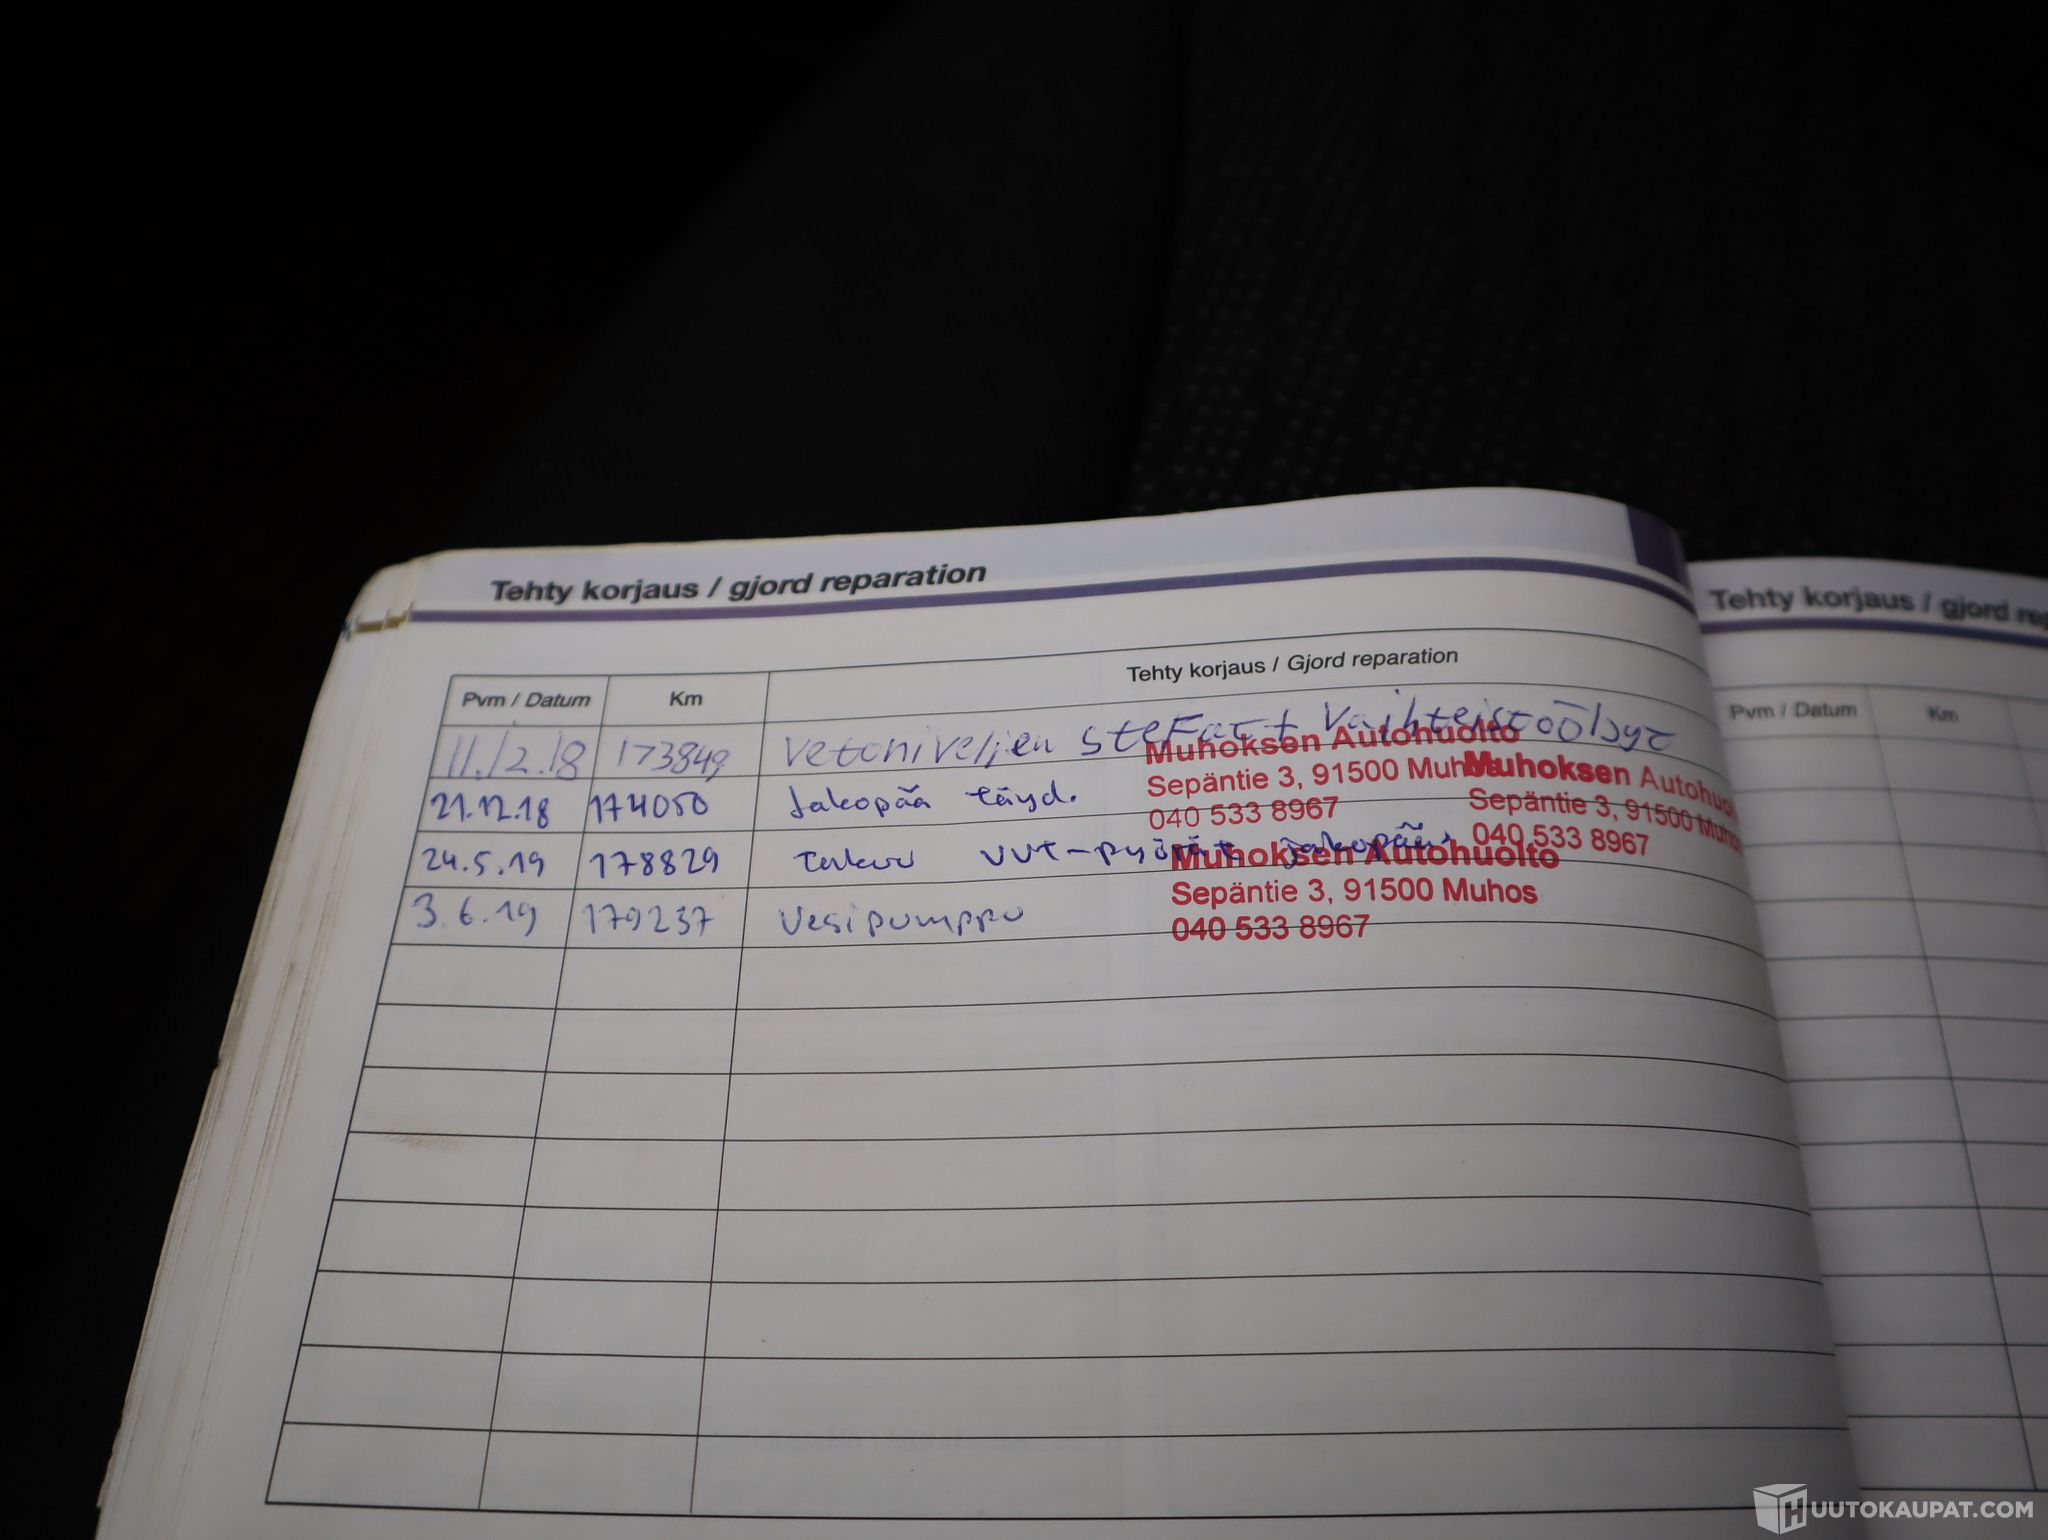 Tehty korjaus / gjord reparation
Tehty korjaus / gjord rep
Pvm / Datum Km Tehty korjaus / Gjord reparation
11.12.18 173849 Vetonivelien stefat + Vaihteistoöljyt
21.12.18 174050 Jakopää täyd.
24.5.19 178829 takuu VVT-pyörät jakopään
3.6.19 179237 Vesipumppu
Muhoksen Autohuolto
Sepäntie 3, 91500 Muhos
040 533 8967
Muhoksen Autohuol
Sepäntie 3, 91500 Muhos
040 533 8967
Muhoksen Autohuolto
Sepäntie 3, 91500 Muhos
040 533 8967
Pvm / Datum Km
HUUTOKAUPAT.COM